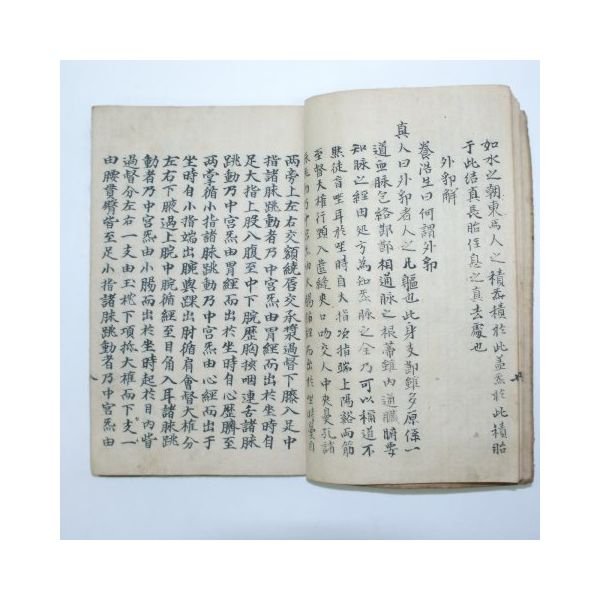 如水之朝東焉人之積炁積於此蓋炁於此積胎
于此結真長胎住息之真去處也
外郛解
養浩生曰何謂外郛
真人曰外郛者人之凡軀也此身支部雖多原係一
道血脉包絡部部相通脉之根蒂雖內通臟腑要
知脉之經由处方為知炁脉之全乃可以稱道不
然徒盲坐耳於坐時自大指次指端上陽谿兩筋
至督大椎行頸入齒縫夾口吻交人中夾鼻孔諸
脉跳動乃中宮炁由大腸經而出於坐時鼻
兩旁上左右交額繞唇交承漿過督下膝入足中
指諸脉跳動者乃中宮炁由胃經而出於坐時自
足大指上股入腹至中下腕歷胸挾咽連舌諸脉
跳動乃中宮炁由 經而出於坐時自心歷臍至
兩掌循小指諸脉跳動乃中宮炁由心經而出于
坐時自小指端出腕與踝出肘循肩會督大椎分
左右下腋過上腕中腕循經至目角入耳諸脉跳
動者乃中宮炁由小腸而出於坐時起於目內眥
過督分左右一支由玉枕下項抵大椎而下支一
由腰貫臍 至足小指諸脉跳動者乃中宮炁由